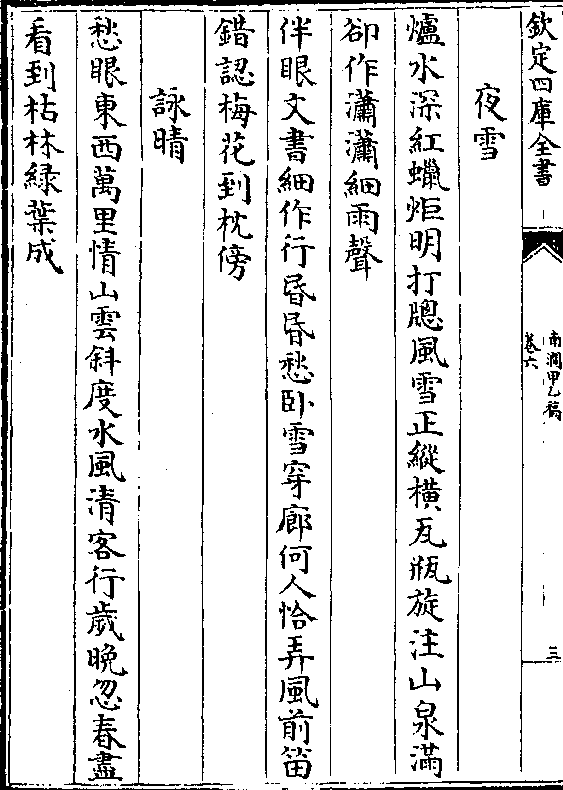 欽定四庫全書
南澗甲乙稿
卷六
三
夜雪
爐水深紅蠟炬明打牕風雪正縱橫瓦瓶旋注山泉滿
卻作瀟瀟細雨聲
伴眼文書細作行昏昏愁卧雪穿廊何人恰弄風前笛
錯認梅花到枕傍
詠晴
愁眼東西萬里情山雲斜度水風清客行歲晩忽春盡
看到枯林緑葉成